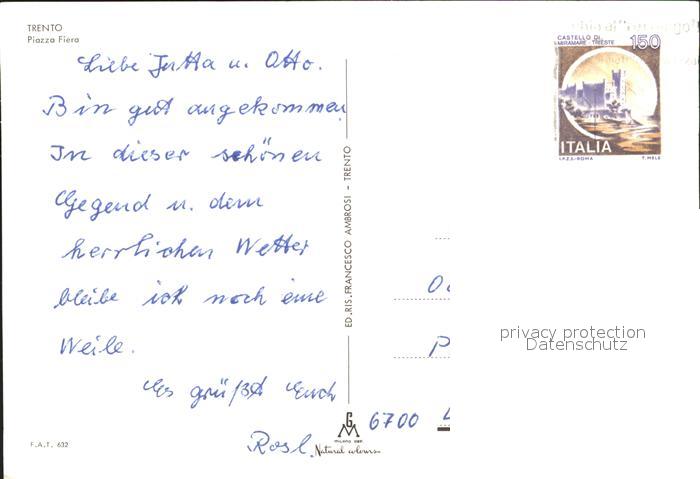 TRENTO
Piazza Fiera
Liebe Jutta u. Otto.
Bin gut angekommen
In dieser schönen
Gegend u. dem
herrlichen Wetter
bleibe ich noch eine
Weile.
Es grüßt Euch
Rosl.
F.A.T. 632
ED. RIS. FRANCESCO AMBROSI - TRENTO
GM
Natural colours
CASTELLO DI
MIRAMARE TRIESTE
150
ITALIA
I.P.Z.S.-ROMA T. MELE
6700
privacy protection
Datenschutz